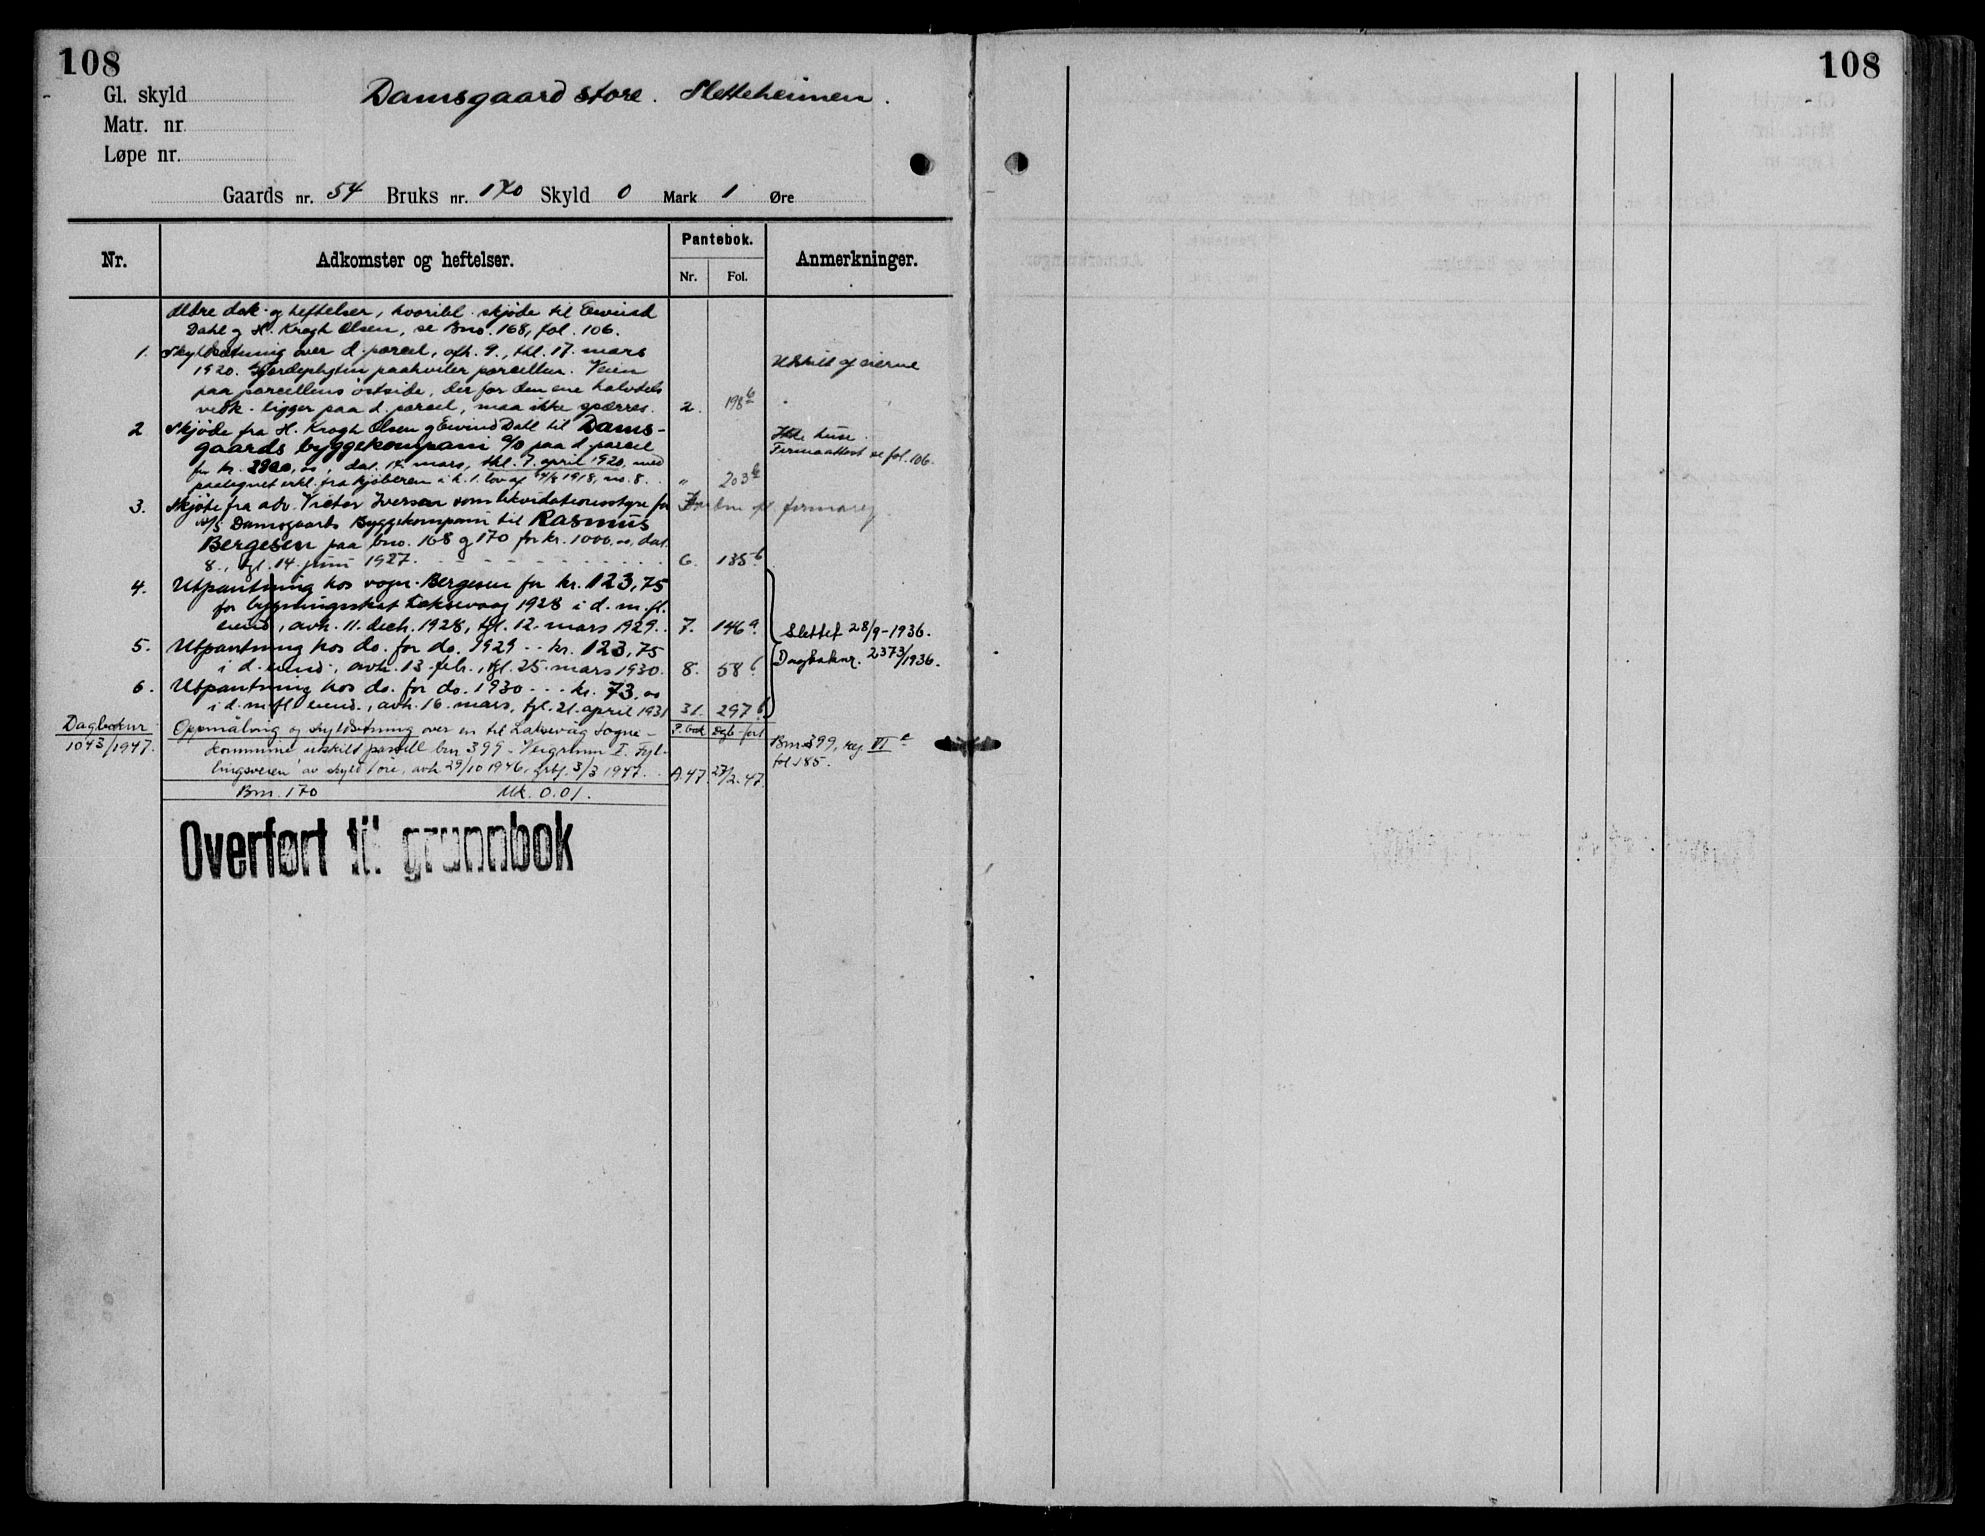 108
108
Gl. skyld
Damsgaard store. Sletteheimen.
Matr. nr.
Løpe nr.
Gaards nr. 54 Bruks nr. 170 Skyld 0 Mark 1 Øre
Nr.
Adkomster og heftelser.
Pantebok.
Nr. Fol.
Anmerkninger.
Ældre dok. og heftelser, hvoriblt. skjøde til Eivind
Dahl og H. Krogh Olsen, se Bno. 168, fol. 106.
1. Skyldsætning over d. parcel, afh. 9., thl. 17. mars
1920. Gjerdepligten paahviler parcellen. Veien
Utskilt af eierne
paa parcellens østside, der for den ene halvdels
vedk. ligger paa d. parcel, maa ikke spærres. 2. 198 b
2 Skjøde fra H. Krogh Olsen og Eivind Dahl til Dams-
gaards byggekompani a/s paa d. parcel
Ikke huse.
Firmaattest se fol. 106.
for kr. 2800,00, dat. 14. mars, thl. 7. april 1920, med
paategnet erkl. fra kjøberen i h. t. lov af 1918, no. 8. " 203 b
3. Skjøte fra adv. Victor Iversen som likvidationsstyre for
A/S Damsgaards Byggekompani til Rasmus
Bergesen paa bno. 168 og 170 for kr. 1000.00, dat.
8., tgl. 14. juni 1927. 6. 135 b
4. Utpantning hos vogn. Bergesen for kr. 123,75
for bygningsskat Laksevaag 1928 i d. m. fl.
eiend., avh. 11. dech. 1928, tgl. 12. mars 1929. 7. 146 a.
Slettet 28/9-1936.
5. Utpantning hos do. for do. 1929 .. kr. 123,75
i d. eiend., avh. 13. feb., tgl. 25. mars 1930. 8. 58 b
Dagboknr. 2373/1936.
6. Utpantning hos do. for do. 1930 ... kr. 73,00
i d. m. fl. eiend., avh. 16. mars, tgl. 21. april 1931 31. 297 b
Dagboknr.
1043/1947.
Oppmåling og skyldsetning over en til Laksevåg sogne-
P. bok Dgb-ført
kommune utskilt parsell bnr 399 - Veigrunn I. Fyl-
Bnr 399, reg. VI
fol. 185.
lingsveien av skyld 1 øre, avh. 29/10 1946, grbf. 3/3 1947. A.47 27/2.47.
Bnr. 170 Mk. 0.01.
Overført til grunnbok